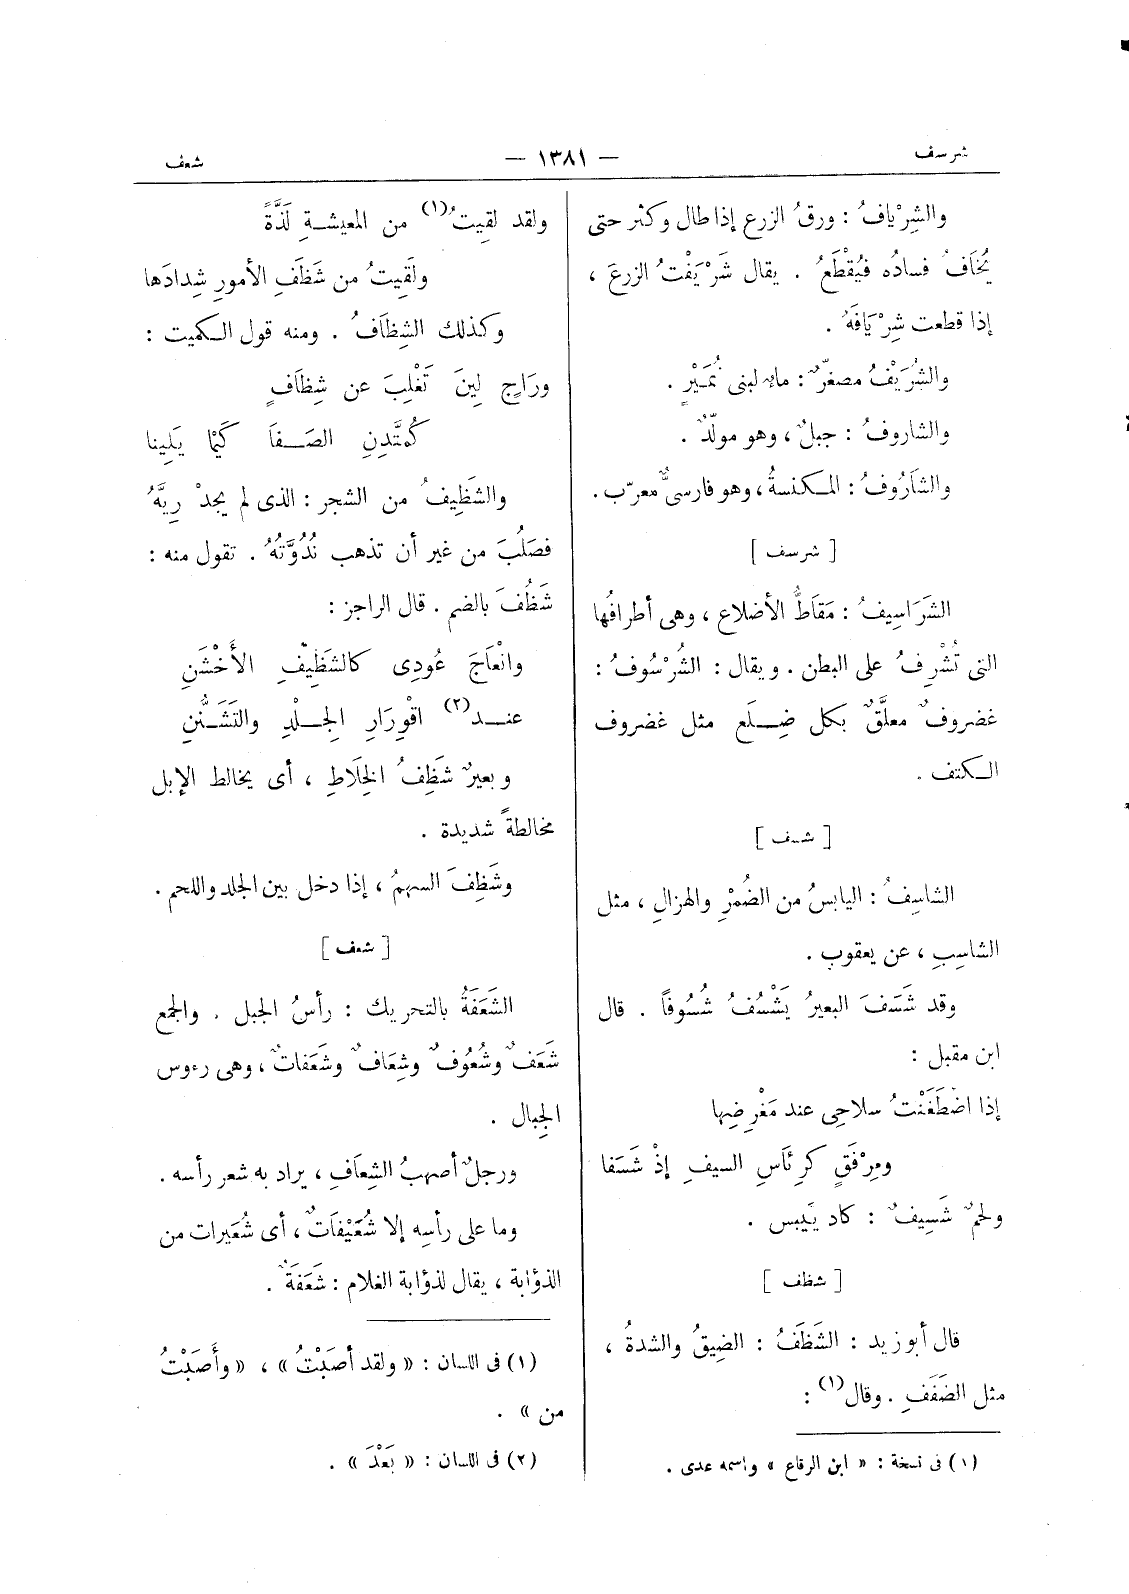 شرسف — ١٣٨١ — شعف
والشِرْيافُ : ورقُ الزرع إذا طال وكثر حتى
يُخَافُ فسادُه فيُقْطَعُ . يقال شَرْيَفْتُ الزرعَ ،
إذا قطعت شِرْيَافَهُ .
والشُرَيْفُ مصغّرٌ : ماء لبنى نُمَيْرٍ .
والشاروفُ : جبلٌ ، وهو مولّدٌ .
والشَارُوفُ : المكنسةُ ، وهو فارسىٌّ معرّب .
[ شرسف ]
الشَرَاسِيفُ : مَقَاطُّ الأضلاع ، وهى أطرافُها
التى تُشْرِفُ على البطن . ويقال : الشُرْسُوفُ :
غضروفٌ معلَّقٌ بكل ضِلَعٍ مثل غضروف
الكتف .
[ شسف ]
الشاسِفُ : اليابسُ من الضُمْرِ والهزالِ ، مثل
الشاسِبِ ، عن يعقوب .
وقد شَسَفَ البعيرُ يَشْسُفُ شُسُوفًا . قال
ابن مقبل :
إذا اضْطَغَنْتُ سلاحِى عند مَغْرِضِها
ومِرْفَقٍ كرِئَاسِ السيفِ إذْ شَسَفَا
ولحمٌ شَسِيفٌ : كاد يَيْبس .
[ شظف ]
قال أبو زيد : الشَظَفُ : الضِيقُ والشدةُ ،
مثل الضَفَفِ . وقال(١) :
(١) فى نسخة : « ابن الرقاع » واسمه عدى .
ولقد لقِيتُ(١) من المعيشةِ لَذَّةً
ولَقِيتُ من شَظَفِ الأمورِ شِدادَها
وكذلك الشِظَافُ . ومنه قول الكميت :
ورَاجٍ لِينَ تَغْلِبَ عن شِظَافٍ
كمُتَّدِنِ الصَفَا كَيْمَا يَلِينا
والشَظِيفُ من الشجر : الذى لم يجدْ رِيَّهُ
فصَلُبَ من غير أن تذهب نُدُوَّتُهُ . تقول منه :
شَظُفَ بالضم . قال الراجز :
وانْعَاجَ عُودِى كالشَظِيْفِ الأَخْشَنِ
عند(٢) اقْوِرَارِ الجِلْدِ والتَشَنُّنِ
وبعيرٌ شَظِفُ الخِلَاطِ ، أى يخالط الإبل
مخالطةً شديدة .
وشَظِفَ السهمُ ، إذا دخل بين الجلد واللحم .
[ شعف ]
الشَعَفَةُ بالتحريك : رأسُ الجبل . والجمع
شَعَفٌ وشُعُوفٌ وشِعَافٌ وشَعَفاتٌ ، وهى رءوس
الجِبال .
ورجلٌ أصهبُ الشِعَافِ ، يراد به شعر رأسه .
وما على رأسِه إلا شُعَيْفَاتٌ ، أى شُعَيرات من
الذؤابة ، يقال لذؤابة الغلام : شَعَفَةٌ .
(١) فى اللسان : « ولقد أصَبْتُ » ، « وأَصَبْتُ
من » .
(٢) فى اللسان : « بَعْدَ » .